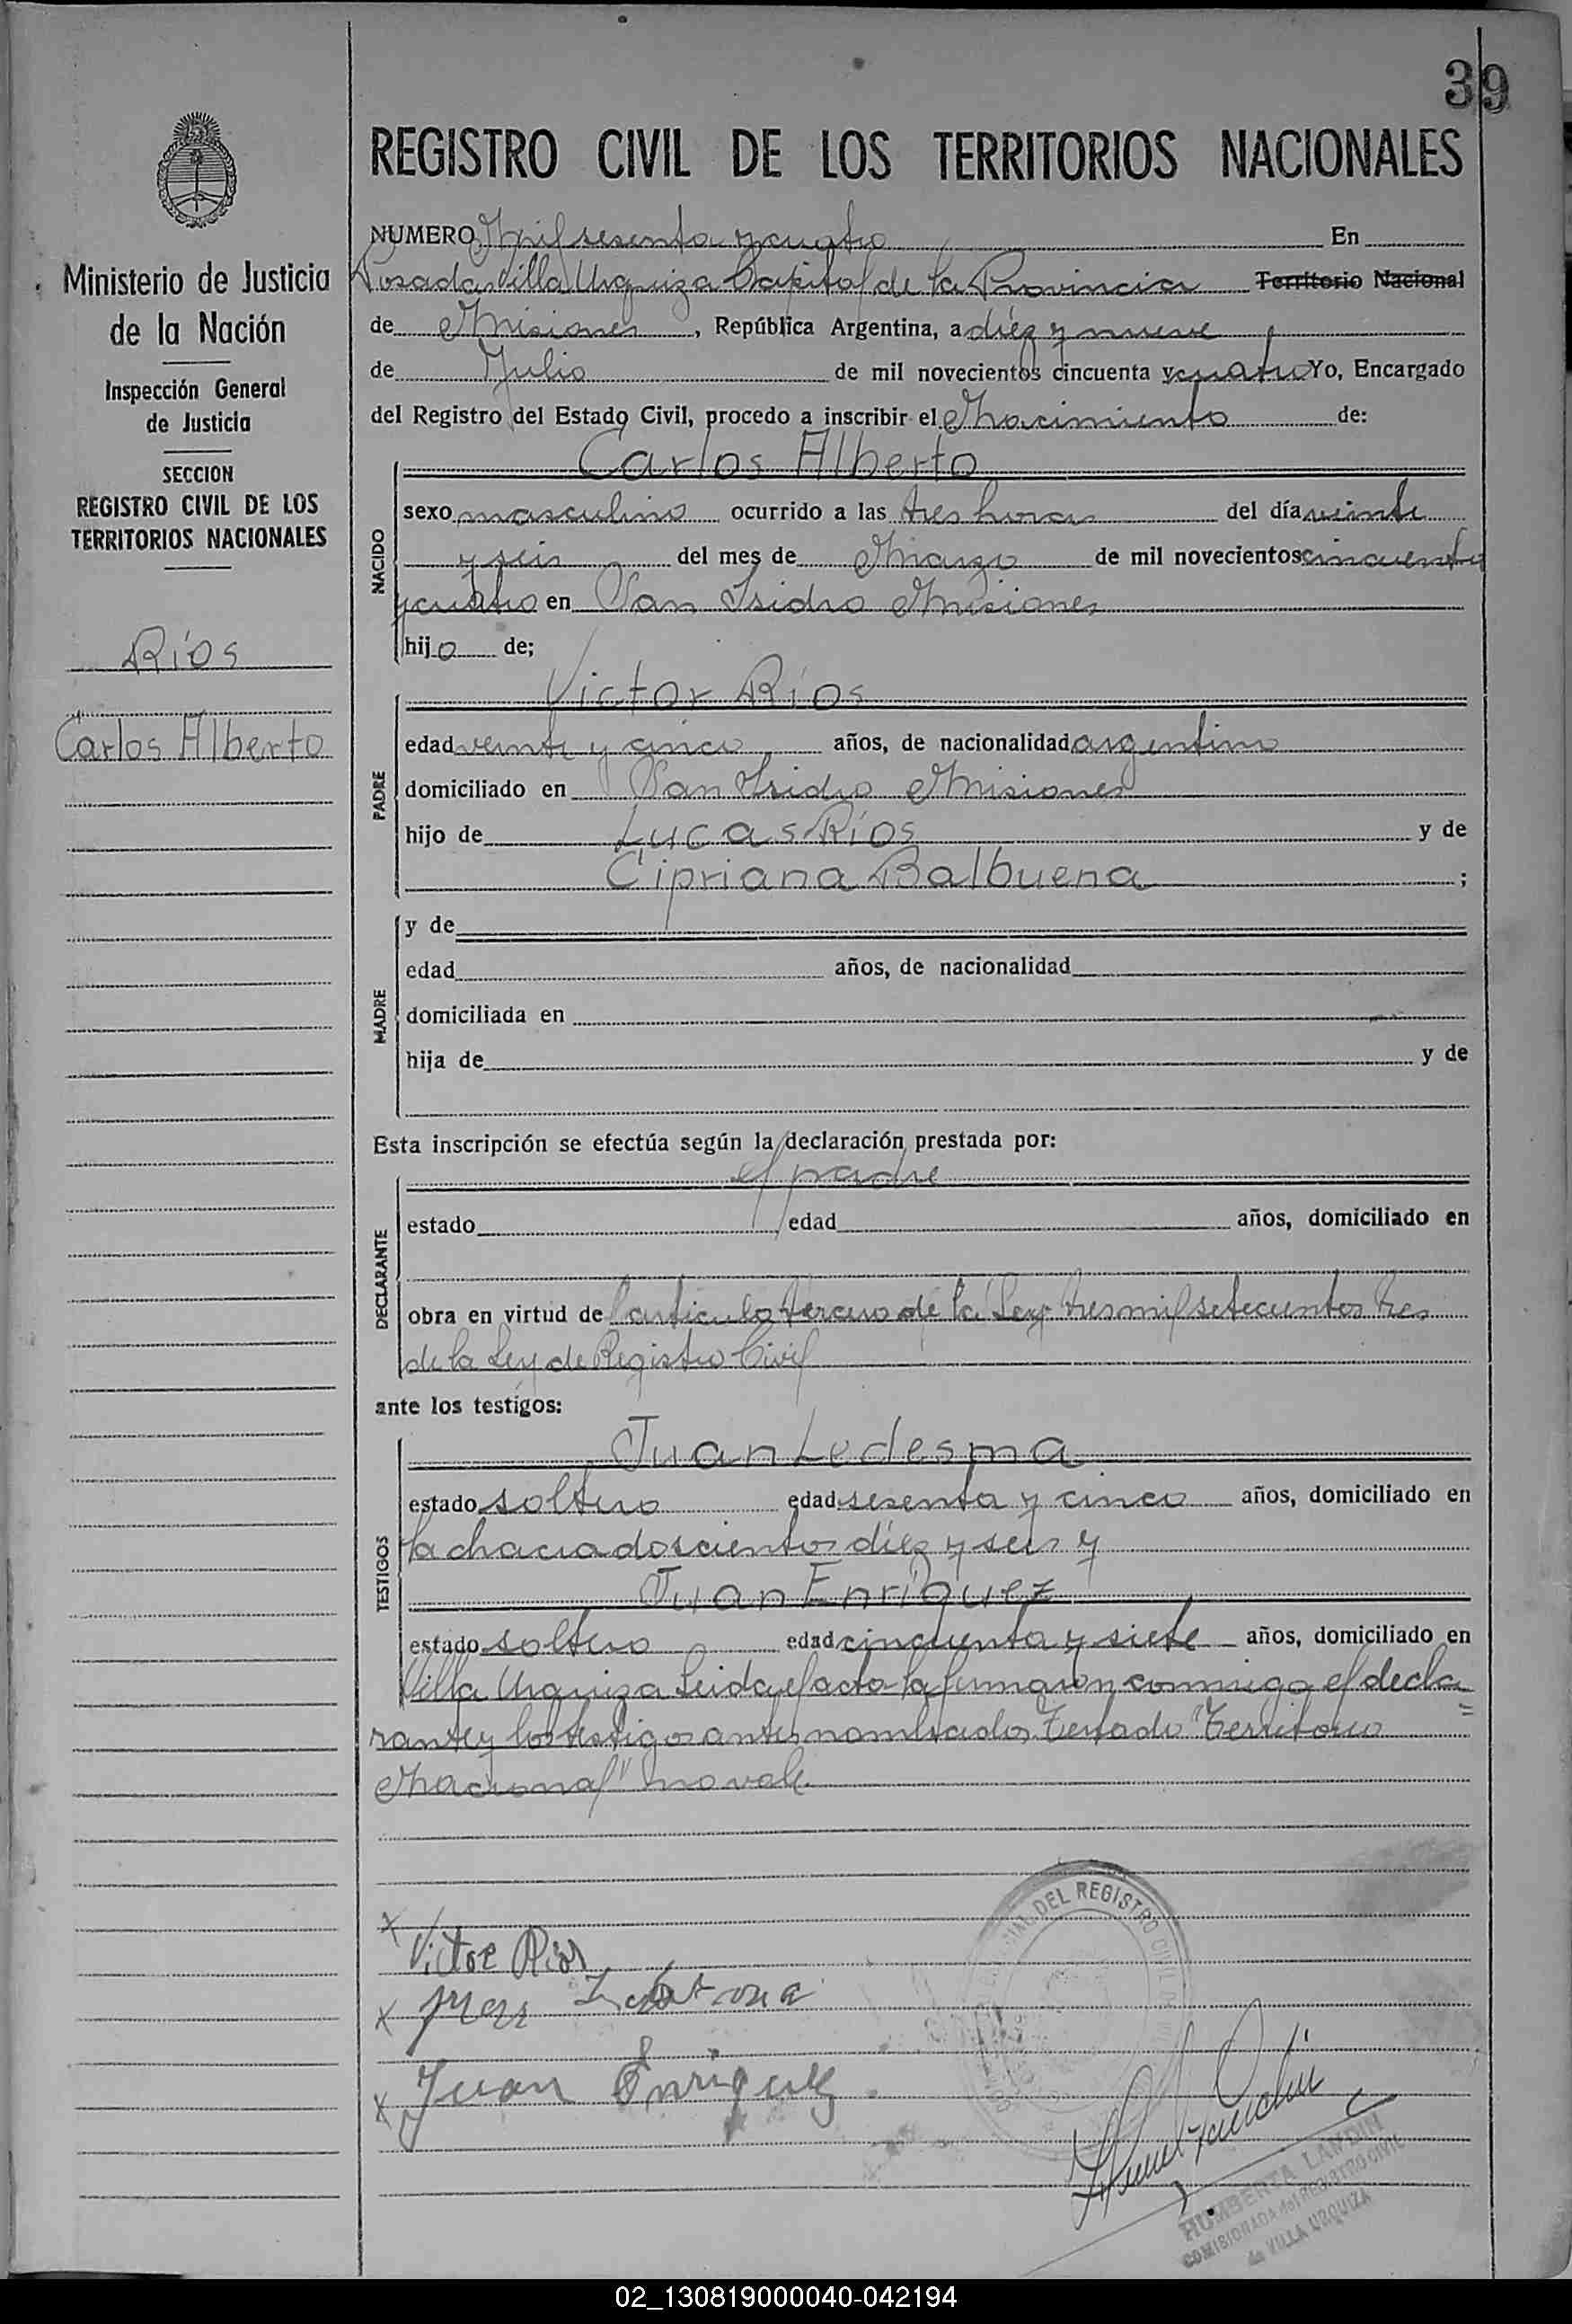 39
REGISTRO CIVIL DE LOS TERRITORIOS NACIONALES
Ministerio de Justicia
de la Nación
Inspección General
de Justicia
SECCION
REGISTRO CIVIL DE LOS
TERRITORIOS NACIONALES
Ríos
Carlos Alberto
NUMERO Mil sesenta y cuatro En
Posadas Villa Urquiza Capital de la Provincia Territorio Nacional
de Misiones, República Argentina, a diez y nueve
de Julio de mil novecientos cincuenta y cuatro Yo, Encargado
del Registro del Estado Civil, procedo a inscribir el Nacimiento de:
NACIDO
Carlos Alberto
sexo masculino ocurrido a las tres horas del día veinte
y seis del mes de Marzo de mil novecientos cincuenta
y cuatro en San Isidro Misiones
hijo de;
PADRE
Victor Ríos
edad veinte y cinco años, de nacionalidad argentino
domiciliado en San Isidro Misiones
hijo de Lucas Ríos y de
Cipriana Balbuena ;
MADRE
y de
edad años, de nacionalidad
domiciliada en
hija de y de
Esta inscripción se efectúa según la declaración prestada por:
DECLARANTE
el padre
estado edad años, domiciliado en
obra en virtud de l articulo tercero de la Ley tres mil setecientos tres
de la Ley de Registro Civil
ante los testigos:
TESTIGOS
Juan Ledesma
estado soltero edad sesenta y cinco años, domiciliado en
la chacra doscientos diez y seis y
Juan Enriquez
estado soltero edad cincuenta y siete años, domiciliado en
Villa Urquiza Leida el acta la firmaron conmigo el decla=
rante y los testigos antes nombrados. Testado "Territorio
Nacional" no vale.
x Victor Rios
x Juan
x Juan Enriquez
DEL REGISTRO CIVIL
HUMBERTA LANDIN
COMISIONADA del REGISTRO CIVIL
de VILLA URQUIZA
02_130819000040-042194